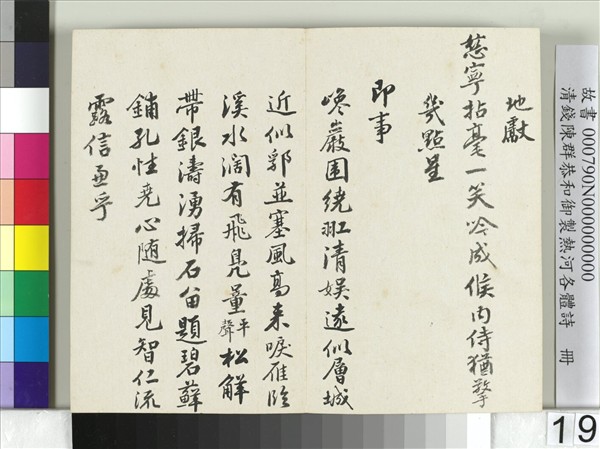 故書 000790N000000000
清錢陳群恭和御製熱河各體詩 冊
地獻
慈寧拈毫一笑吟成候内侍猶擎
幾點星
即事
巉巖圍繞羾清娛遠似層城
近似郛並塞風高来唳雁臨
溪水濶有飛鳧量平聲松解
帶銀濤湧掃石留題碧蘚
鋪孔性堯心随處見智仁流
露信乎
19